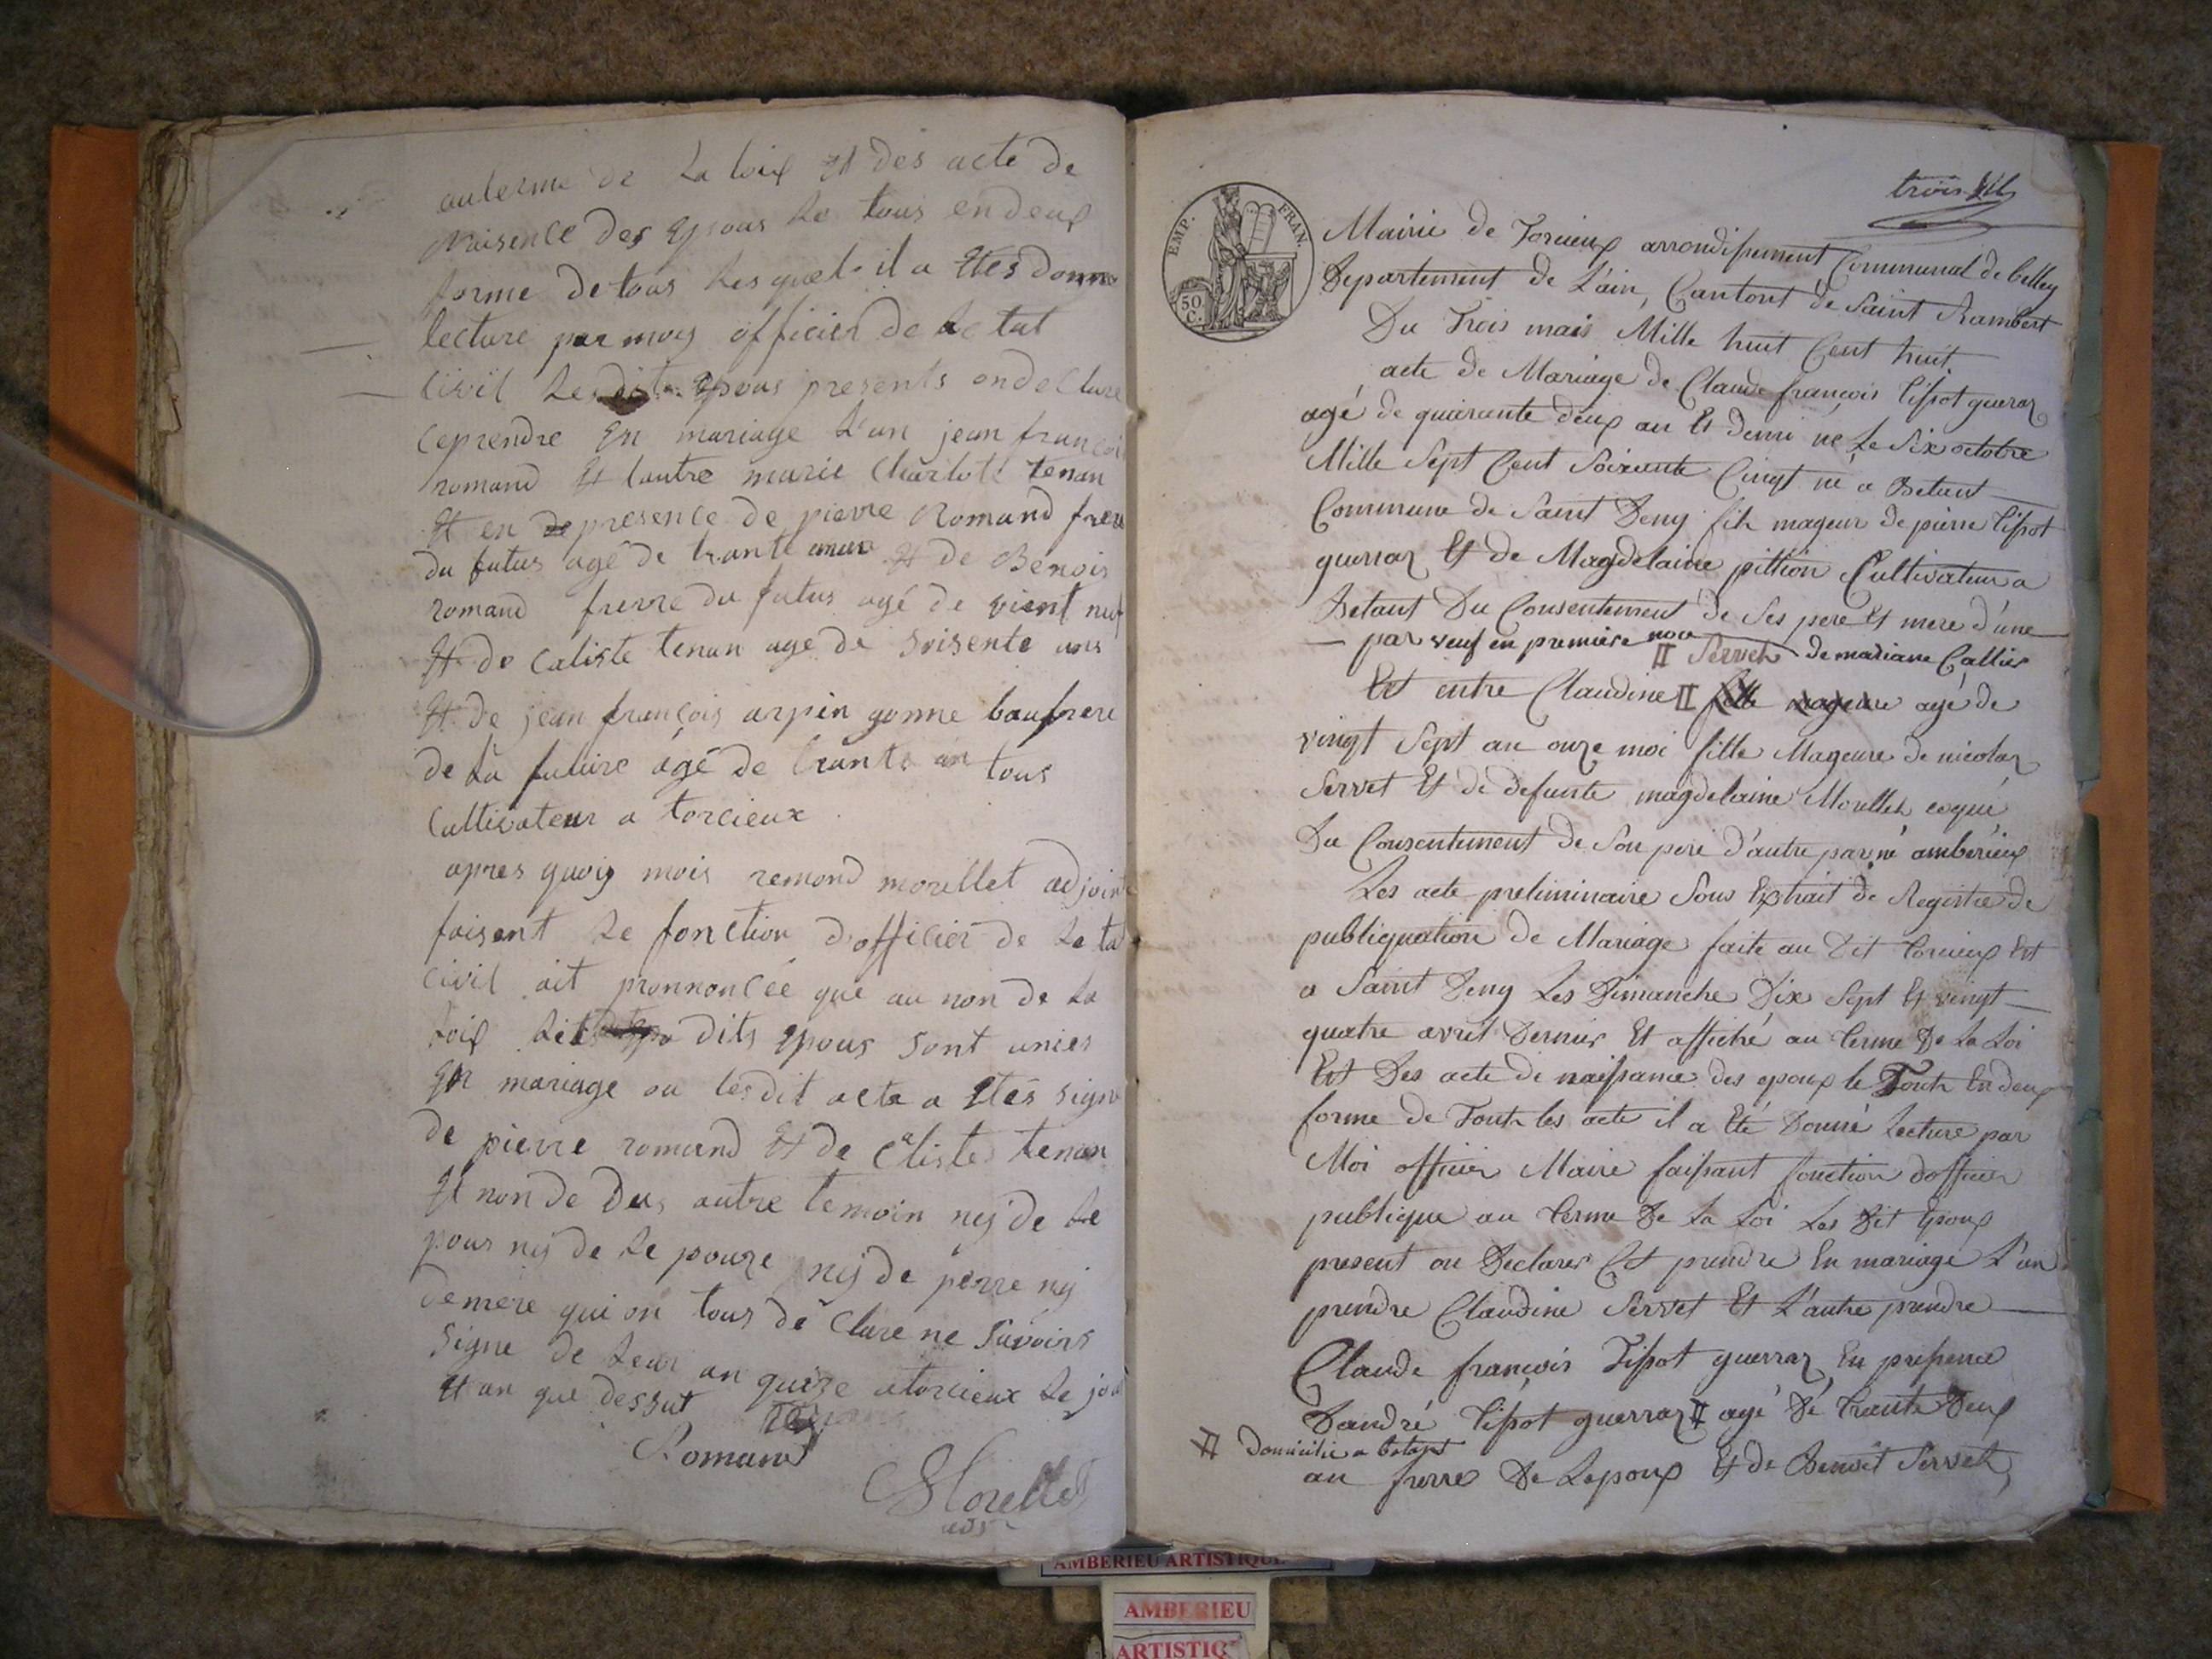 auterme de La loix Et des acte de
naisence des Epous Le tous en deux
forme de tous Lesquel il a Etés donne
lecture par moy officier de Le tat
Civil Lesdits Epous presents on de Clare
ceprendre En mariage L'un jean francoi
romand Et lautre marie Charlote tenan
Et en presence de pierre Romand frere
du futus agé de trante Et de Benois
romand frerre du futus agé de vient neuf
Et de Caliste tenan age de soisente ans
Et de jean françois arpin gonne baufrere
de La future agé de trante an tous
Cultivateur a torcieux
apres quoiy mois remond morellet adjoint
faisent Le fonction d'officier de Le ta
Civil ait pronnoncée que au non de La
loix Les dits Epous sont unies
En mariage ou lesdit acte a Etés signe
de pierre romand Et de Caliste tenan
Et non de deus autre temoin nij de Le
pous nij de Le pouze nij de perre nij
demere qui on tous dé Clare ne savoirs
signe de Leur an quize a torcieux Le jou
Et an que dessut
Romand
Morellet
adj
trois
EMP. FRAN.
50 C.
Mairie de Torcieux arrondissement Communal de belley
Departement de L'ain, Cantont de Saint Rambert
Du Trois mais Mille huit Cent huit
acte de Mariage de Claude françois tissot guerraz
agé de quarante deux an Et demi né Le Six octobre
Mille Sept Cent Soixante Cinqt né a Betant
Commune de Saint Deny fils mageur de pierre tissot
guerraz Et de Magdelaine pittion Cultivateur a
Betant Du Consentement de Ses pere Et mere d'une
par veuf en premiere noce de mariane Callier
II Servet
Et entre Claudine II fille mageure agé de
vingt Sept an onze moi fille Mageure de nicolaz
Servet Et de defunte magdelaine Morellet coqué
Du Consentement de Son pere d'autre par né amberieux
Les acte preliminaire Sous Extrait de Registre de
publiquation de Mariage faite au Dit torcieux Est
a Saint Deny Les Dimanche Dix Sept Et vingt
quatre avril Dernier Et affiché au terme De La Loi
Est Des acte de naissance des epoux le Tout En deux
forme de Tout les acte il a Eté Donné Lecture par
Moi officier Maire faissant fonction dofficier
publique au terme De La Loi Les Dit Epoux
present on Declarer Et prendre En mariage L'un
prendre Claudine Servet Et L'autre prendre
Claude françois Tissot guerraz En pressence
D'andré tissot guerraz II agé De trante Deux
II Domicilié a betant
an frerre De Lepoux Et de Benoit Servet
AMBERIEU ARTISTIQUE
AMBERIEU
ARTISTIQ